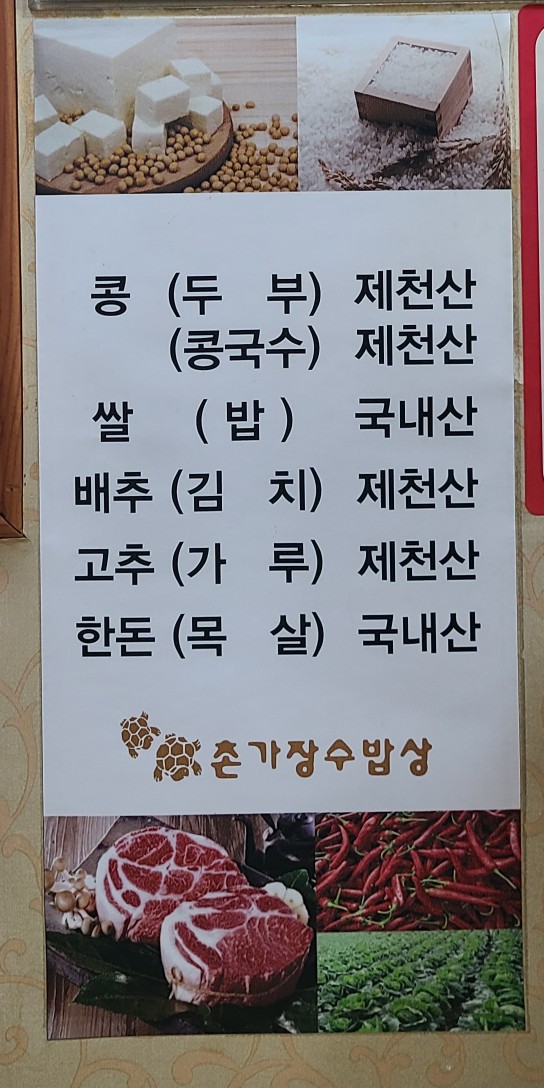 콩 (두 부) 제천산
(콩국수) 제천산
쌀 ( 밥 ) 국내산
배추 (김 치) 제천산
고추 (가 루) 제천산
한돈 (목 살) 국내산
촌가장수밥상